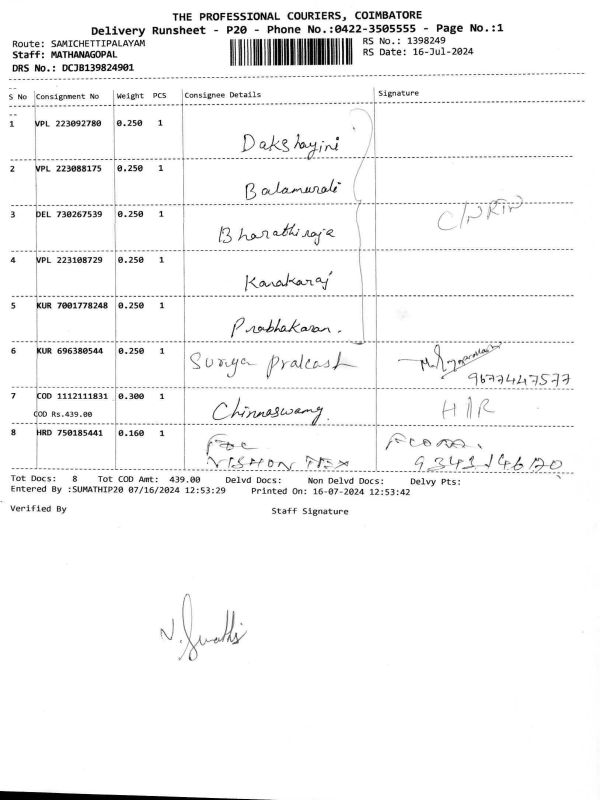 THE PROFESSIONAL COURIERS, COIMBATORE
Delivery Runsheet - P20 - Phone No.:0422-3505555 - Page No.:1
Route: SAMICHETTIPALAYAM RS No.: 1398249
Staff: MATHANAGOPAL RS Date: 16-Jul-2024
DRS No.: DCJB139824901
S No Consignment No Weight PCS Consignee Details Signature
1 VPL 223092780 0.250 1 Dakshayini
2 VPL 223088175 0.250 1 Balamurali
3 DEL 730267539 0.250 1 Bharathiraja
4 VPL 223108729 0.250 1 Kanakaraj
5 KUR 7001778248 0.250 1 Prabhakaran.
6 KUR 696380544 0.250 1 Surya Prakash
9677447577
7 COD 1112111831 0.300 1 Chinnaswamy
COD Rs.439.00
8 HRD 750185441 0.160 1 For
Tot Docs: 8 Tot COD Amt: 439.00 Delvd Docs: Non Delvd Docs: Delvy Pts:
Entered By :SUMATHIP20 07/16/2024 12:53:29 Printed On: 16-07-2024 12:53:42
Verified By Staff Signature